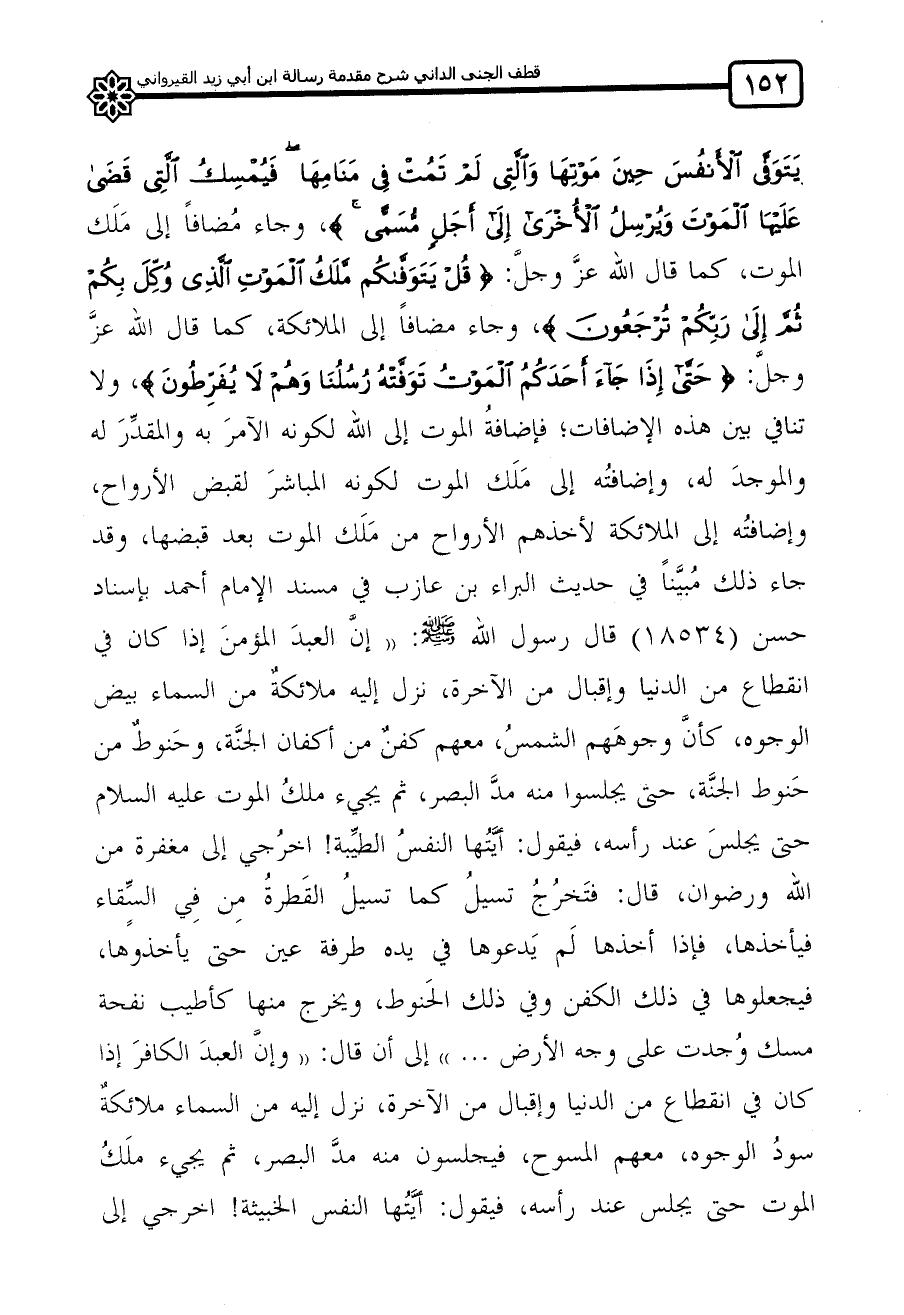 ١٥٢
قطف الجنى الداني شرح مقدمة رسالة ابن أبي زيد القيرواني
يَتَوَفَّى ٱلْأَنفُسَ حِينَ مَوْتِهَا وَٱلَّتِى لَمْ تَمُتْ فِى مَنَامِهَا ۖ فَيُمْسِكُ ٱلَّتِى قَضَىٰ
عَلَيْهَا ٱلْمَوْتَ وَيُرْسِلُ ٱلْأُخْرَىٰٓ إِلَىٰٓ أَجَلٍ مُّسَمًّى ۚ ﴾، وجاء مُضافاً إلى مَلَك
الموت، كما قال الله عزَّ وجلَّ: ﴿ قُلْ يَتَوَفَّىٰكُم مَّلَكُ ٱلْمَوْتِ ٱلَّذِى وُكِّلَ بِكُمْ
ثُمَّ إِلَىٰ رَبِّكُمْ تُرْجَعُونَ ﴾، وجاء مضافاً إلى الملائكة، كما قال الله عزَّ
وجلَّ: ﴿ حَتَّىٰٓ إِذَا جَآءَ أَحَدَكُمُ ٱلْمَوْتُ تَوَفَّتْهُ رُسُلُنَا وَهُمْ لَا يُفَرِّطُونَ ﴾، ولا
تنافي بين هذه الإضافات؛ فإضافةُ الموت إلى الله لكونه الآمرَ به والمقدِّرَ له
والموجدَ له، وإضافتُه إلى مَلَك الموت لكونه المباشرَ لقبض الأرواح،
وإضافتُه إلى الملائكة لأخذهم الأرواح من مَلَك الموت بعد قبضها، وقد
جاء ذلك مُبيَّناً في حديث البراء بن عازب في مسند الإمام أحمد بإسناد
حسن (١٨٥٣٤) قال رسول الله ﷺ: « إنَّ العبدَ المؤمنَ إذا كان في
انقطاع من الدنيا وإقبال من الآخرة، نزل إليه ملائكةٌ من السماء بيض
الوجوه، كأنَّ وجوهَهم الشمسُ، معهم كفنٌ من أكفان الجنَّة، وحَنوطٌ من
حَنوط الجنَّة، حتى يجلسوا منه مدَّ البصر، ثم يجيء ملكُ الموت عليه السلام
حتى يجلسَ عند رأسه، فيقول: أيَّتُها النفسُ الطيِّبة! اخرُجي إلى مغفرة من
الله ورضوان، قال: فتَخرُجُ تسيلُ كما تسيلُ القَطرةُ مِن فِي السِّقاء
فيأخذها، فإذا أخذها لَم يَدعوها في يده طرفة عين حتى يأخذوها،
فيجعلوها في ذلك الكفن وفي ذلك الحَنوط، ويخرج منها كأطيب نفحة
مسك وُجدت على وجه الأرض ... » إلى أن قال: « وإنَّ العبدَ الكافرَ إذا
كان في انقطاع من الدنيا وإقبال من الآخرة، نزل إليه من السماء ملائكةٌ
سودُ الوجوه، معهم المسوح، فيجلسون منه مدَّ البصر، ثم يجيء ملَكُ
الموت حتى يجلس عند رأسه، فيقول: أيَّتُها النفس الخبيثة! اخرجي إلى